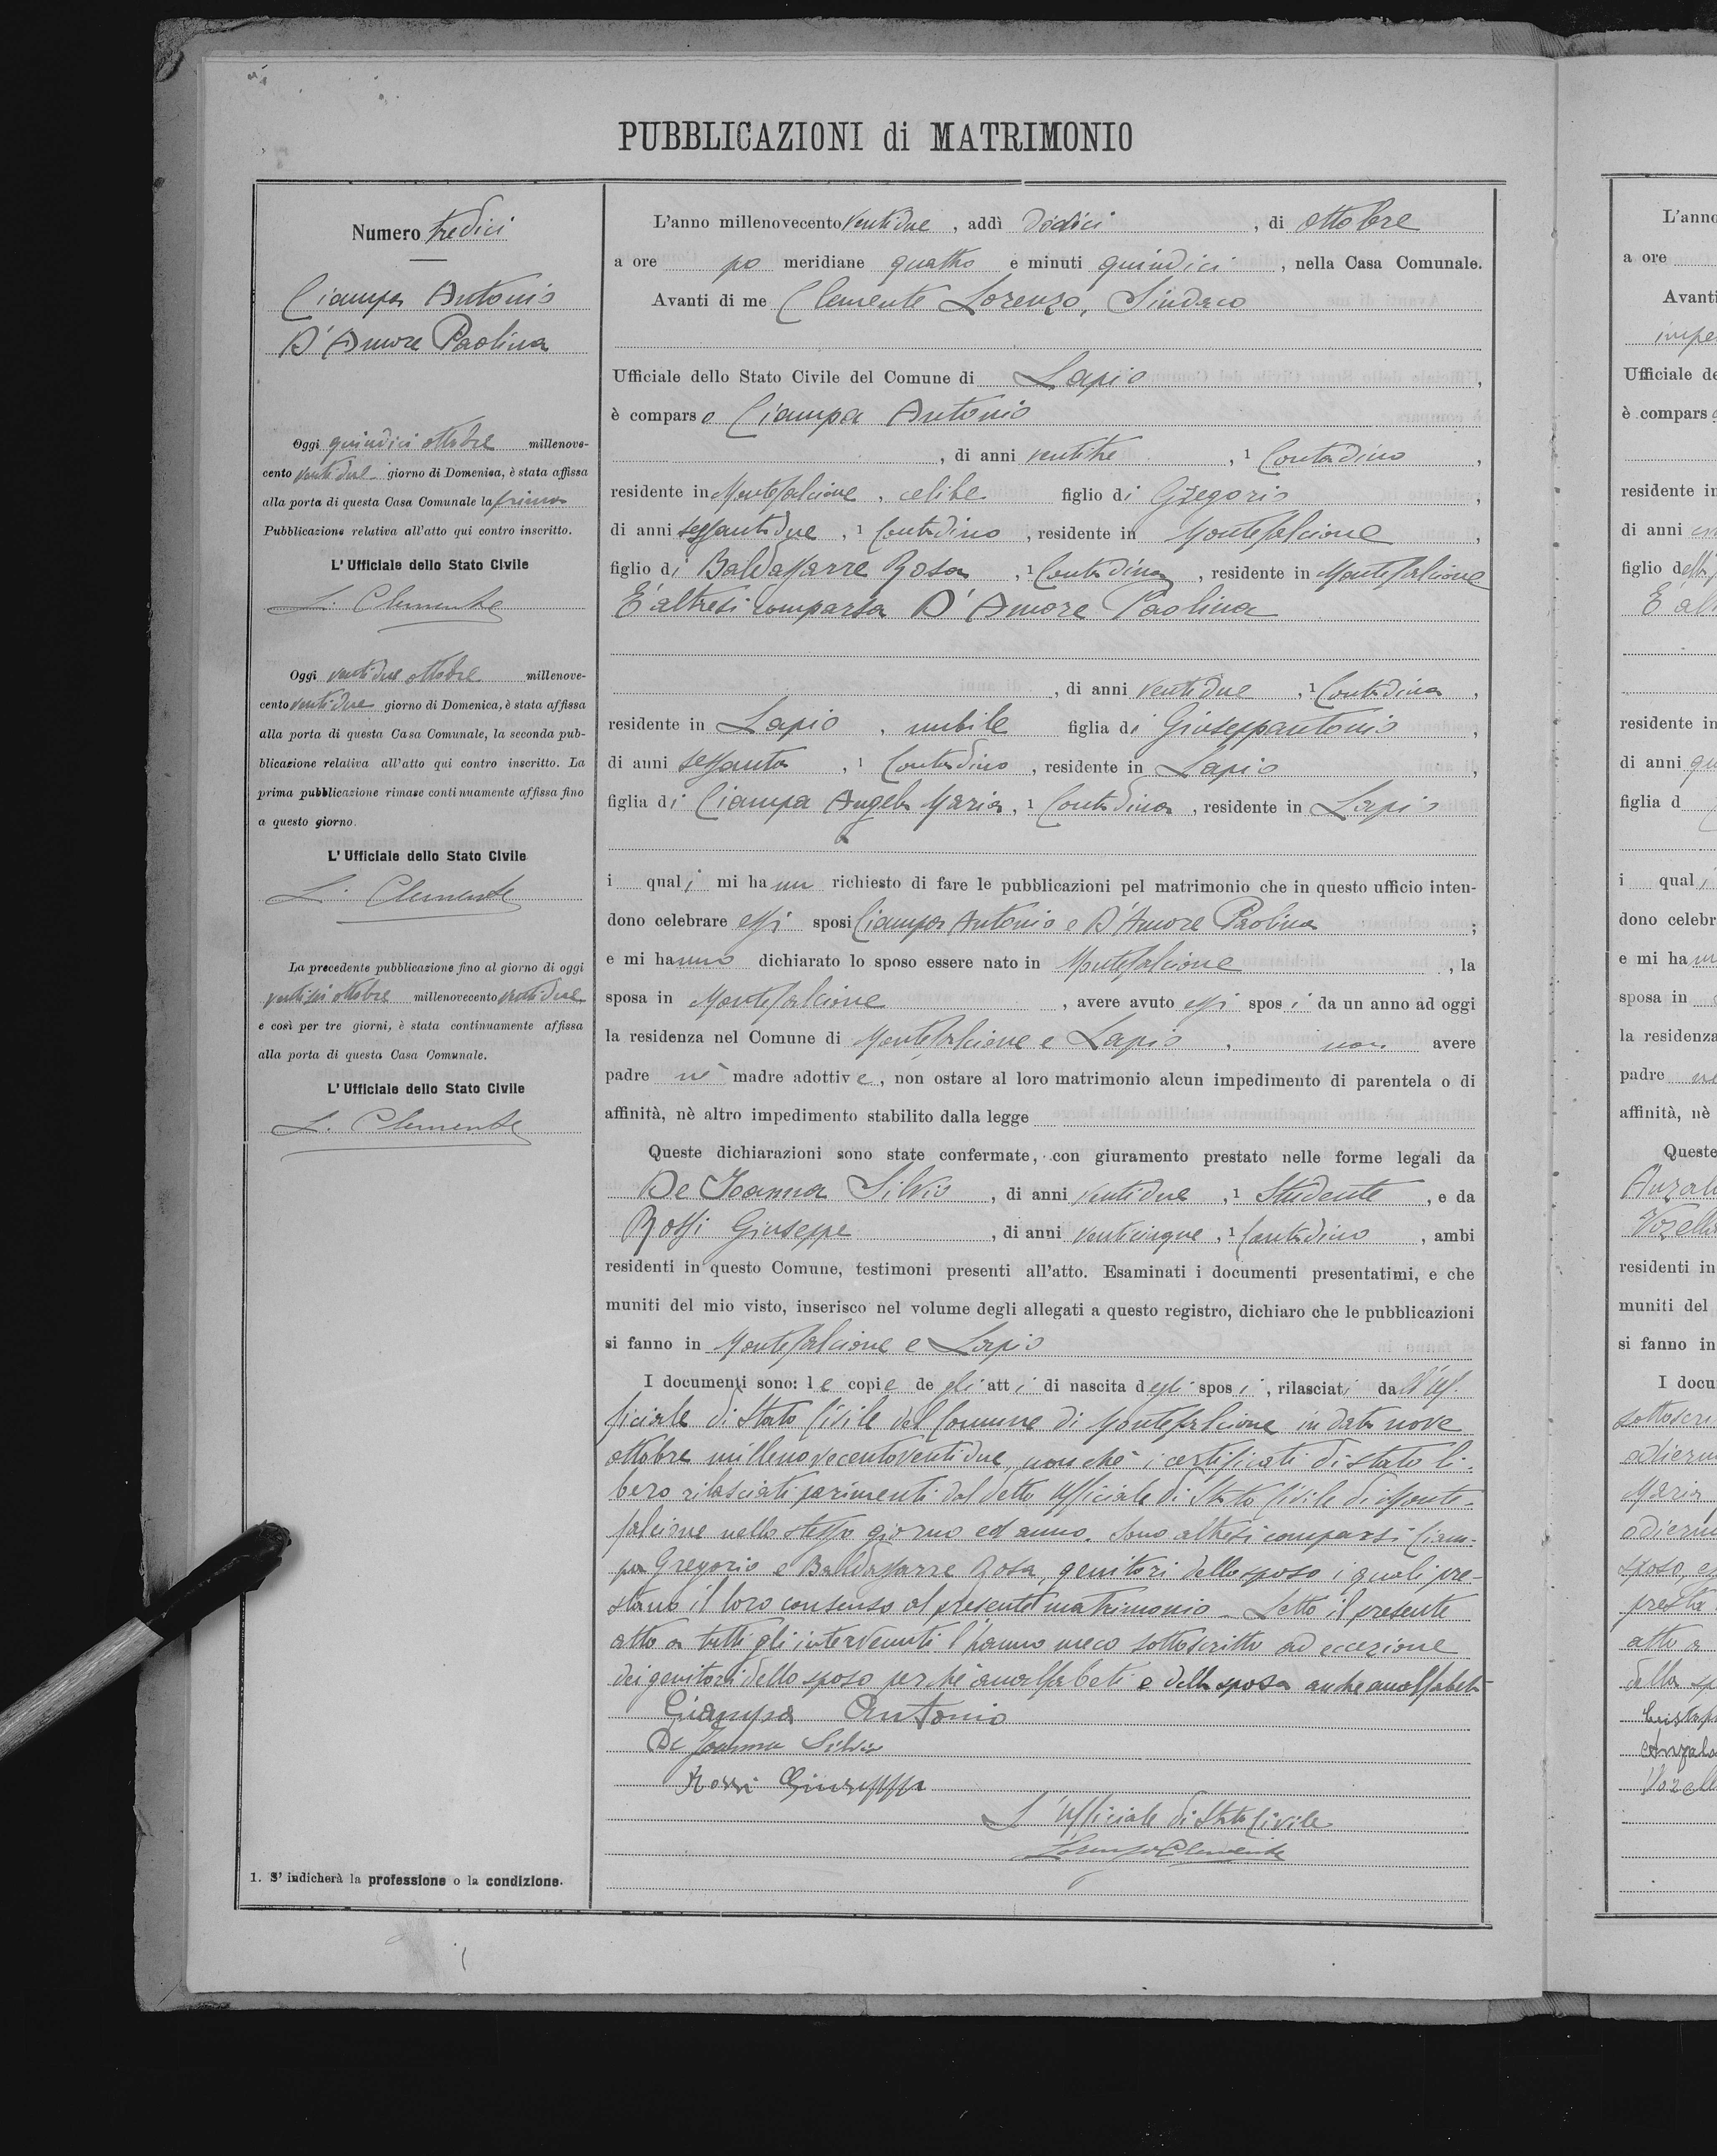 PUBBLICAZIONI di MATRIMONIO
Numero tredici
Ciampa Antonio
D'Amore Paolina
Oggi quindici ottobre millenove-
cento ventidue giorno di Domenica, è stata affissa
alla porta di questa Casa Comunale la prima
Pubblicazione relativa all'atto qui contro inscritto.
L'Ufficiale dello Stato Civile
L. Clemente
Oggi ventidue ottobre millenove-
cento ventidue giorno di Domenica, è stata affissa
alla porta di questa Casa Comunale, la seconda pub-
blicazione relativa all'atto qui contro inscritto. La
prima pubblicazione rimase continuamente affissa fino
a questo giorno.
L'Ufficiale dello Stato Civile
L. Clemente
La precedente pubblicazione fino al giorno di oggi
ventisei ottobre millenovecento ventidue
e così per tre giorni, è stata continuamente affissa
alla porta di questa Casa Comunale.
L'Ufficiale dello Stato Civile
L. Clemente
1. S' indicherà la professione o la condizione.
L'anno millenovecento ventidue, addì dodici, di ottobre
a ore po meridiane quattro e minuti quindici, nella Casa Comunale.
Avanti di me Clemente Lorenzo, Sindaco
Ufficiale dello Stato Civile del Comune di Lapio,
è comparso Ciampa Antonio
, di anni ventitre, 1 Contadino,
residente in Montefalcione, celibe figlio di Gregorio,
di anni sessantidue, 1 Contadino, residente in Montefalcione,
figlio di Baldassarre Rosa, 1 Contadina, residente in Montefalcione
E' altresi comparsa D'Amore Paolina
, di anni ventidue, 1 Contadina,
residente in Lapio, nubile figlia di Giuseppantonio,
di anni sessanta, 1 Contadino, residente in Lapio,
figlia di Ciampa Angela Maria, 1 Contadina, residente in Lapio
i quali mi hann richiesto di fare le pubblicazioni pel matrimonio che in questo ufficio inten-
dono celebrare essi sposi Ciampa Antonio e D'Amore Paolina;
e mi hanno dichiarato lo sposo essere nato in Montefalcione, la
sposa in Montefalcione, avere avuto essi sposi da un anno ad oggi
la residenza nel Comune di Montefalcione e Lapio, non avere
padre nè madre adottive, non ostare al loro matrimonio alcun impedimento di parentela o di
affinità, nè altro impedimento stabilito dalla legge
Queste dichiarazioni sono state confermate, con giuramento prestato nelle forme legali da
De Ioanna Silvio, di anni ventidue, 1 Studente, e da
Rossi Giuseppe, di anni venticinque, 1 Contadino, ambi
residenti in questo Comune, testimoni presenti all'atto. Esaminati i documenti presentatimi, e che
muniti del mio visto, inserisco nel volume degli allegati a questo registro, dichiaro che le pubblicazioni
si fanno in Montefalcione e Lapio
I documenti sono: le copie degli atti di nascita degli sposi, rilasciati dall'uf.
ficiale di Stato Civile del Comune di Montefalcione in data nove
ottobre millenovecentoventidue, non chè i certificati di stato li.
bero rilasciati parimenti dal detto Ufficiale di Stato Civile di Monte-
falcione nello stesso giorno ed anno. Sono altresi comparsi Ciam-
pa Gregorio e Baldassarre Rosa, genitori dello sposo i quali pre-
stano il loro consenso al presente matrimonio - Letto il presente
atto a tutti gli intervenuti l'hanno meco sottoscritto ad eccezione
dei genitori dello sposo perchè analfabeti e della sposa anche analfabeta
Ciampa Antonio
De Joanna Silvio
Rossi Giuseppe
L'Ufficiale di Stato Civile
Lorenzo Clemente
L'anno
a ore
Avanti
Ufficiale de
è compars
residente in
di anni
figlio d
E al
residente in
di anni qu
figlia d
i qual
dono celebr
e mi ha
sposa in
la residenza
padre
affinità, nè
Queste
residenti in
muniti del
si fanno in
I docu
sottoscri
Maria
sposo, e
presta
atto a
della sp